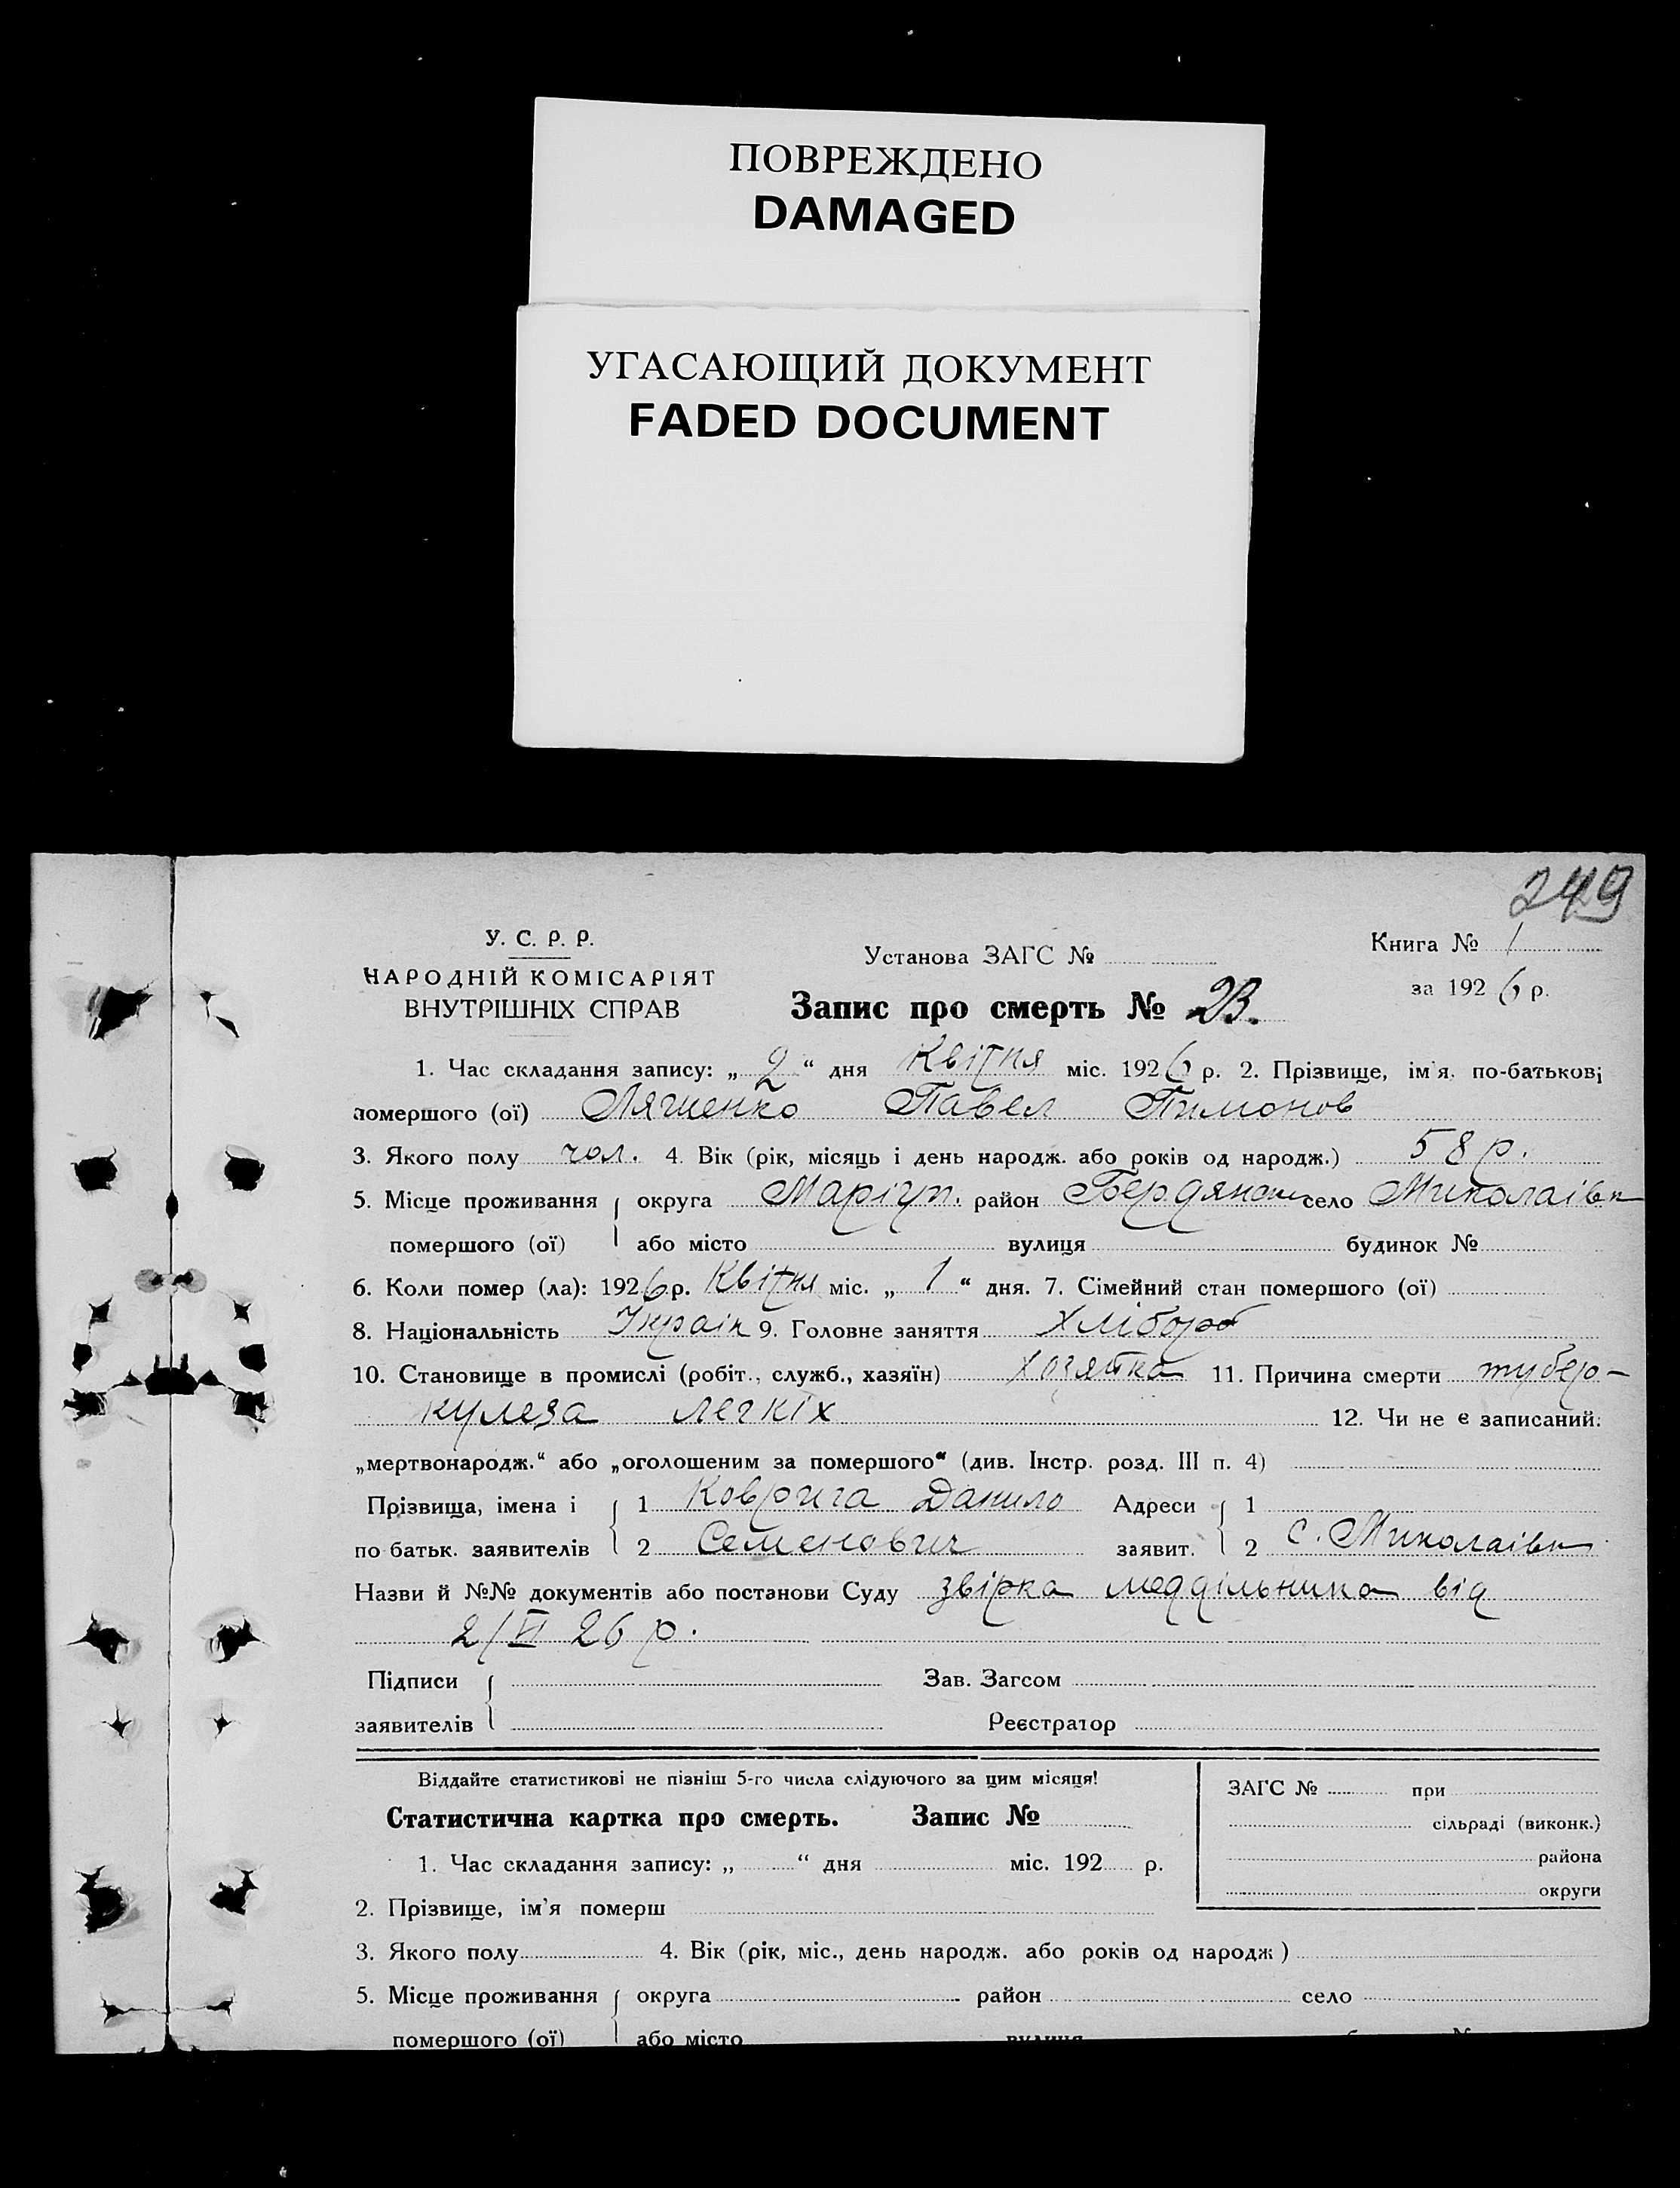 ПОВРЕЖДЕНО
DAMAGED
УГАСАЮЩИЙ ДОКУМЕНТ
FADED DOCUMENT
249
У. С. Р. Р.
НАРОДНІЙ КОМІСАРІЯТ
ВНУТРІШНІХ СПРАВ
Установа ЗАГС №
Запис про смерть № 23.
Книга № 1
за 1926 р.
1. Час складання запису: „ 2 “ дня Квітня міс. 1926 р. 2. Прізвище, ім'я, по-батькові
помершого (ої) Ляшенко Павел Тимонов
3. Якого полу чол. 4. Вік (рік, місяць і день народж. або років од народж.) 58 р.
5. Місце проживання округа Маріуп. район Бердянськ село Миколаівк
помершого (ої) або місто вулиця будинок №
6. Коли помер (ла): 1926 р. Квітня міс. „ 1 “ дня. 7. Сімейний стан помершого (ої)
8. Національність Украін 9. Головне заняття Хлібороб
10. Становище в промислі (робіт., служб., хазяїн) 11. Причина смерти тубер-
кулеза легкіх 12. Чи не є записаний:
„мертвонародж.“ або „оголошеним за помершого“ (див. Інстр. розд. III п. 4)
Прізвища, імена і 1 Коврига Данило Адреси 1
по батьк. заявителів 2 Семенович заявит. 2 с. Миколаівк
Назви й №№ документів або постанови Суду від
2/VI 26 р.
Підписи Зав. Загсом
заявителів Реєстратор
Віддайте статистикові не пізніш 5-го числа слідуючого за цим місяця!
Статистична картка про смерть. Запис №
ЗАГС № при
сільраді (виконк.)
района
округи
1. Час складання запису: „ “ дня міс. 192 р.
2. Прізвище, ім'я померш
3. Якого полу 4. Вік (рік, міс., день народж. або років од народж )
5. Місце проживання округа район село
помершого (ої) або місто вулиця